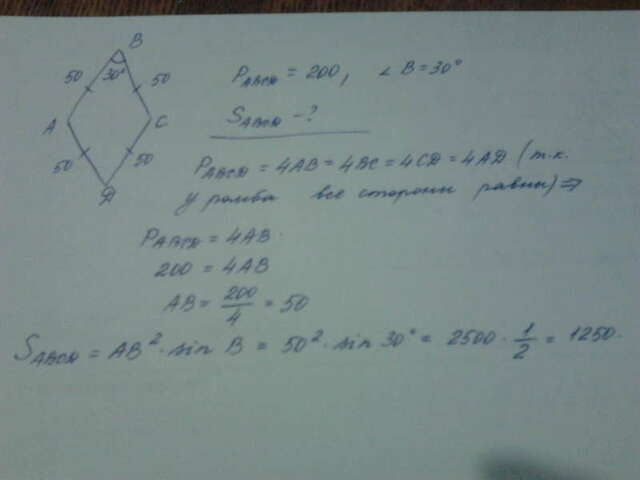 B
50 30° 50
A C
50 50
D
P_ABCD = 200, ∠B = 30°
S_ABCD - ?
P_ABCD = 4AB = 4BC = 4CD = 4AD (т.к.
у ромба все стороны равны) ⇒
P_ABCD = 4AB.
200 = 4AB
AB = 200/4 = 50
S_ABCD = AB² · sin B = 50² · sin 30° = 2500 · 1/2 = 1250.